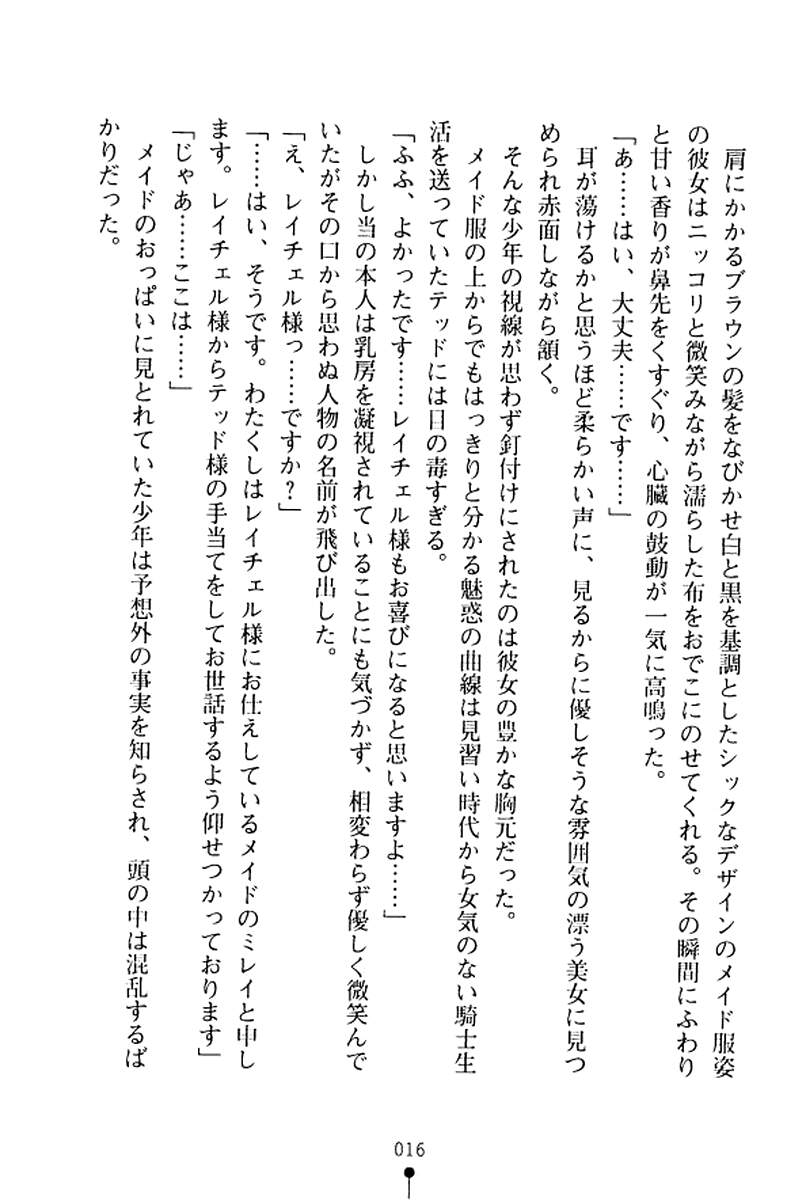 肩にかかるブラウンの髪をなびかせ白と黒を基調としたシックなデザインのメイド服姿
の彼女はニッコリと微笑みながら濡らした布をおでこにのせてくれる。その瞬間にふわり
と甘い香りが鼻先をくすぐり、心臓の鼓動が一気に高鳴った。
「あ……はい、大丈夫……です……」
耳が蕩けるかと思うほど柔らかい声に、見るからに優しそうな雰囲気の漂う美女に見つ
められ赤面しながら頷く。
そんな少年の視線が思わず釘付けにされたのは彼女の豊かな胸元だった。
メイド服の上からでもはっきりと分かる魅惑の曲線は見習い時代から女気のない騎士生
活を送っていたテッドには目の毒すぎる。
「ふふ、よかったです……レイチェル様もお喜びになると思いますよ……」
しかし当の本人は乳房を凝視されていることにも気づかず、相変わらず優しく微笑んで
いたがその口から思わぬ人物の名前が飛び出した。
「え、レイチェル様っ……ですか？」
「……はい、そうです。わたくしはレイチェル様にお仕えしているメイドのミレイと申し
ます。レイチェル様からテッド様の手当てをしてお世話するよう仰せつかっております」
「じゃあ……ここは……」
メイドのおっぱいに見とれていた少年は予想外の事実を知らされ、頭の中は混乱するば
かりだった。
016